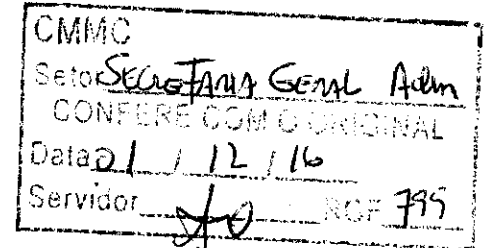 CMMC
Setor SECRETARIA GERAL Adm
CONFERE COM O ORIGINAL
Data 01 / 12 / 16
Servidor RGF 795